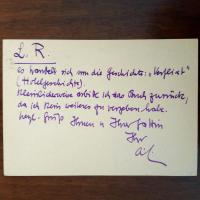 L. R.
es handelt sich um die Geschichte: „Verflixt"
(Hotelgeschichte)
erbitte ich das Buch zurück,
da ich kein weiteres zu vergeben habe.
herzl. Grüße Ihnen u Ihrer Gattin
Ihr